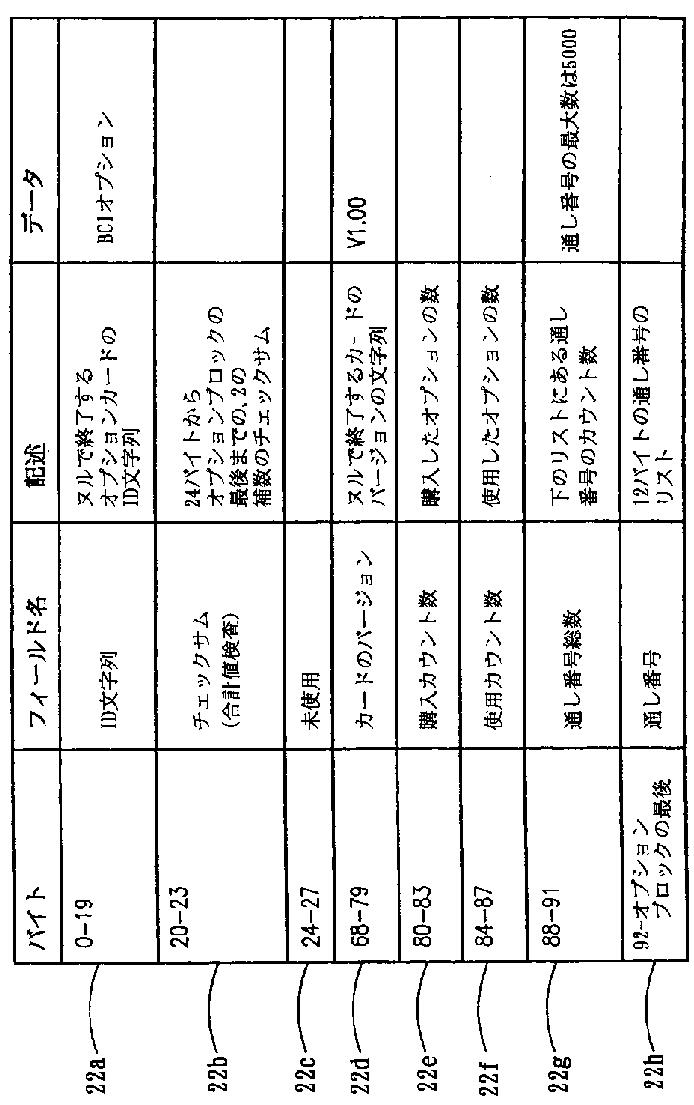 バイト フィールド名 記述 データ
22a 0-19 ID文字列 ヌルで終了する BCIオプション
オプションカードの
ID文字列
22b 20-23 チェックサム 24バイトから
(合計値検査) オプションブロックの
最後までの、2の
補数のチェックサム
22c 24-27 未使用
22d 68-79 カードのバージョン ヌルで終了するカードの V1.00
バージョンの文字列
22e 80-83 購入カウント数 購入したオプションの数
22f 84-87 使用カウント数 使用したオプションの数
22g 88-91 通し番号総数 下のリストにある通し 通し番号の最大数は5000
番号のカウント数
22h 92-オプション 通し番号 12バイトの通し番号の
ブロックの最後 リスト